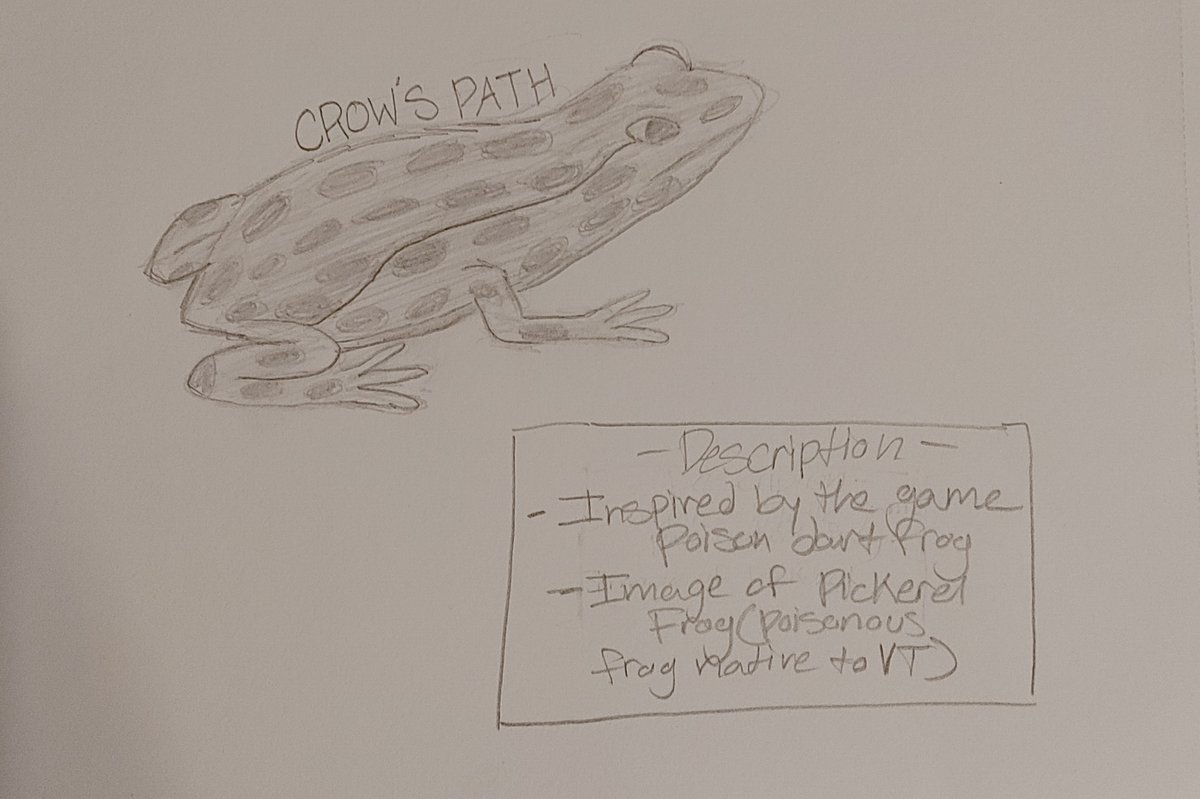 CROW'S PATH
- Description -
- Inspired by the game
Poison dart frog
- Image of Pickerel
Frog (poisonous
frog native to VT)